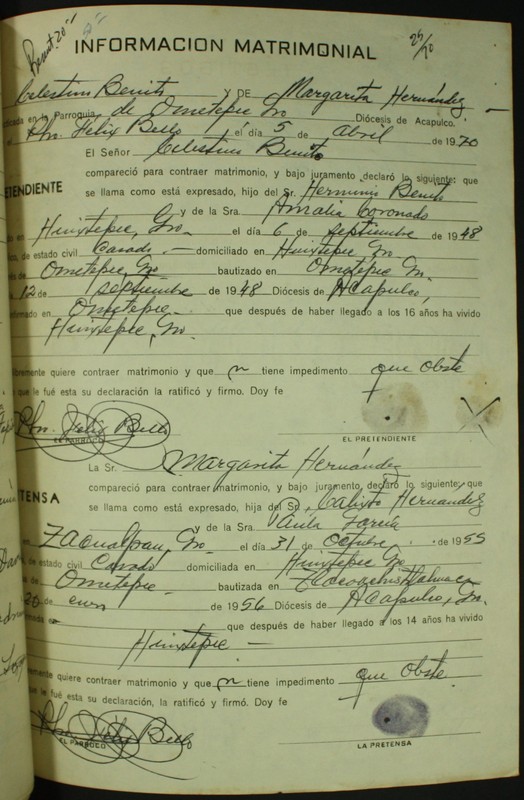 INFORMACION MATRIMONIAL
Celestino Benito y DE Margarita Hernández
en la Parroquia de Ometepec Gro Diócesis de Acapulco.
Pbro. Félix Bello el día 5 de abril de 1970
El Señor Celestino Benito
compareció para contraer matrimonio, y bajo juramento declaró lo siguiente: que
se llama como está expresado, hijo del Sr. Herminio Benito
ETENDIENTE
y de la Sra. Amalia Coronado
en Huixtepec, Gro. el día 6 de septiembre de 1948
de estado civil Casado domiciliado en Huixtepec Gro.
de Ometepec, Gro bautizado en Ometepec
12 de septiembre de 1948 Diócesis de Acapulco,
en Ometepec que después de haber llegado a los 16 años ha vivido
Huixtepec, Gro.
bremente quiere contraer matrimonio y que no tiene impedimento que obste
que le fué esta su declaración la ratificó y firmo. Doy fe
Pbro. Félix Bello
EL PARROCO
EL PRETENDIENTE
La Sr. Margarita Hernández
compareció para contraer matrimonio, y bajo juramento, declaró lo siguiente: que
se llama como está expresado, hija del Sr. Calixto Hernández
TENSA
y de la Sra. Paula García
en Zacualpan, Gro el día 31 de octubre de 1955
de estado civil Casado domiciliada en Huixtepec Gro
de Ometepec bautizada en
20 de enero de 1956 Diócesis de Acapulco, Gro.
que después de haber llegado a los 14 años ha vivido
Huixtepec
bremente quiere contraer matrimonio y que no tiene impedimento que obste
que le fué esta su declaración, la ratificó y firmó. Doy fe
Pbro. Félix Bello
EL PARROCO
LA PRETENSA